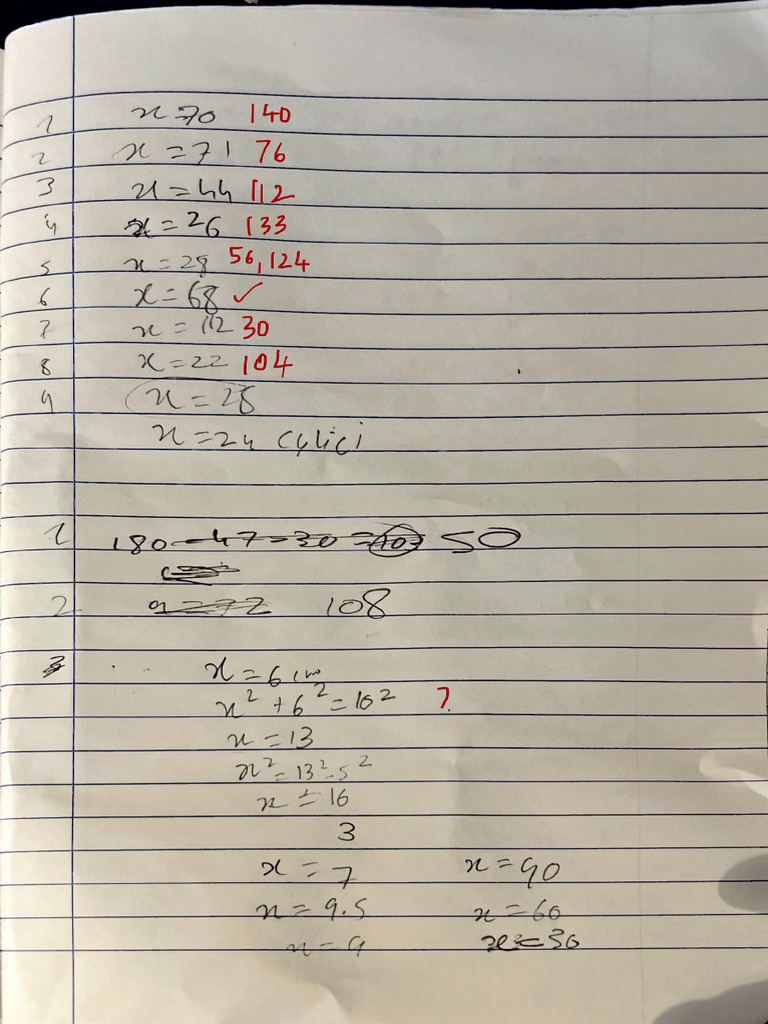 1 x = 70 140
2 x = 71 76
3 x = 44 112
4 x = 26 133
5 x = 28 56,124
6 x = 68 ✓
7 x = 112 30
8 x = 22 104
9 x = 28
x = 24
1 180 - 47 - 30 = 103 50
2 108
3 x = 6 cm
x² + 6² = 10² ?
x = 13
x² = 13² - 5²
x = 16
3
x = 7 x = 90
x = 9.5 x = 60
x = 9 x = 30